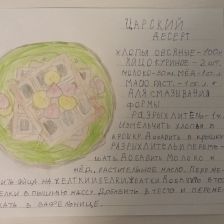 ЦАРСКИЙ
ДЕСЕРТ
ХЛОПЬЯ ОВСЯНЫЕ-100г
ЯЙЦО КУРИНОЕ - 2 шт.
МОЛОКО-50мл. МЁД-10г.
МАСЛО РАСТ. - 1 ч. л
ДЛЯ СМАЗЫВАНИЯ
ФОРМЫ
РАЗРЫХЛИТЕЛЬ-1ч.
ИЗМЕЛЬЧИТЬ ХЛОПЬЯ В
КРОШКУ. ДОБАВИТЬ В КРОШКУ
РАЗРЫХЛИТЕЛЬ И ПЕРЕМЕ-
ШАТЬ. ДОБАВИТЬ МОЛОКО И
МЁД, РАСТИТЕЛЬНОЕ МАСЛО. ПЕРЕМЕ-
ЯЙЦА НА ЖЕЛТКИ И БЕЛКИ. ЖЕЛТКИ ДОБАВИТЬ В ТЕСТО
БЕЛКИ В ПЫШНУЮ МАССУ. ДОБАВИТЬ В ТЕСТО И ПЕРЕМЕ
В ВАФЕЛЬНИЦЕ.